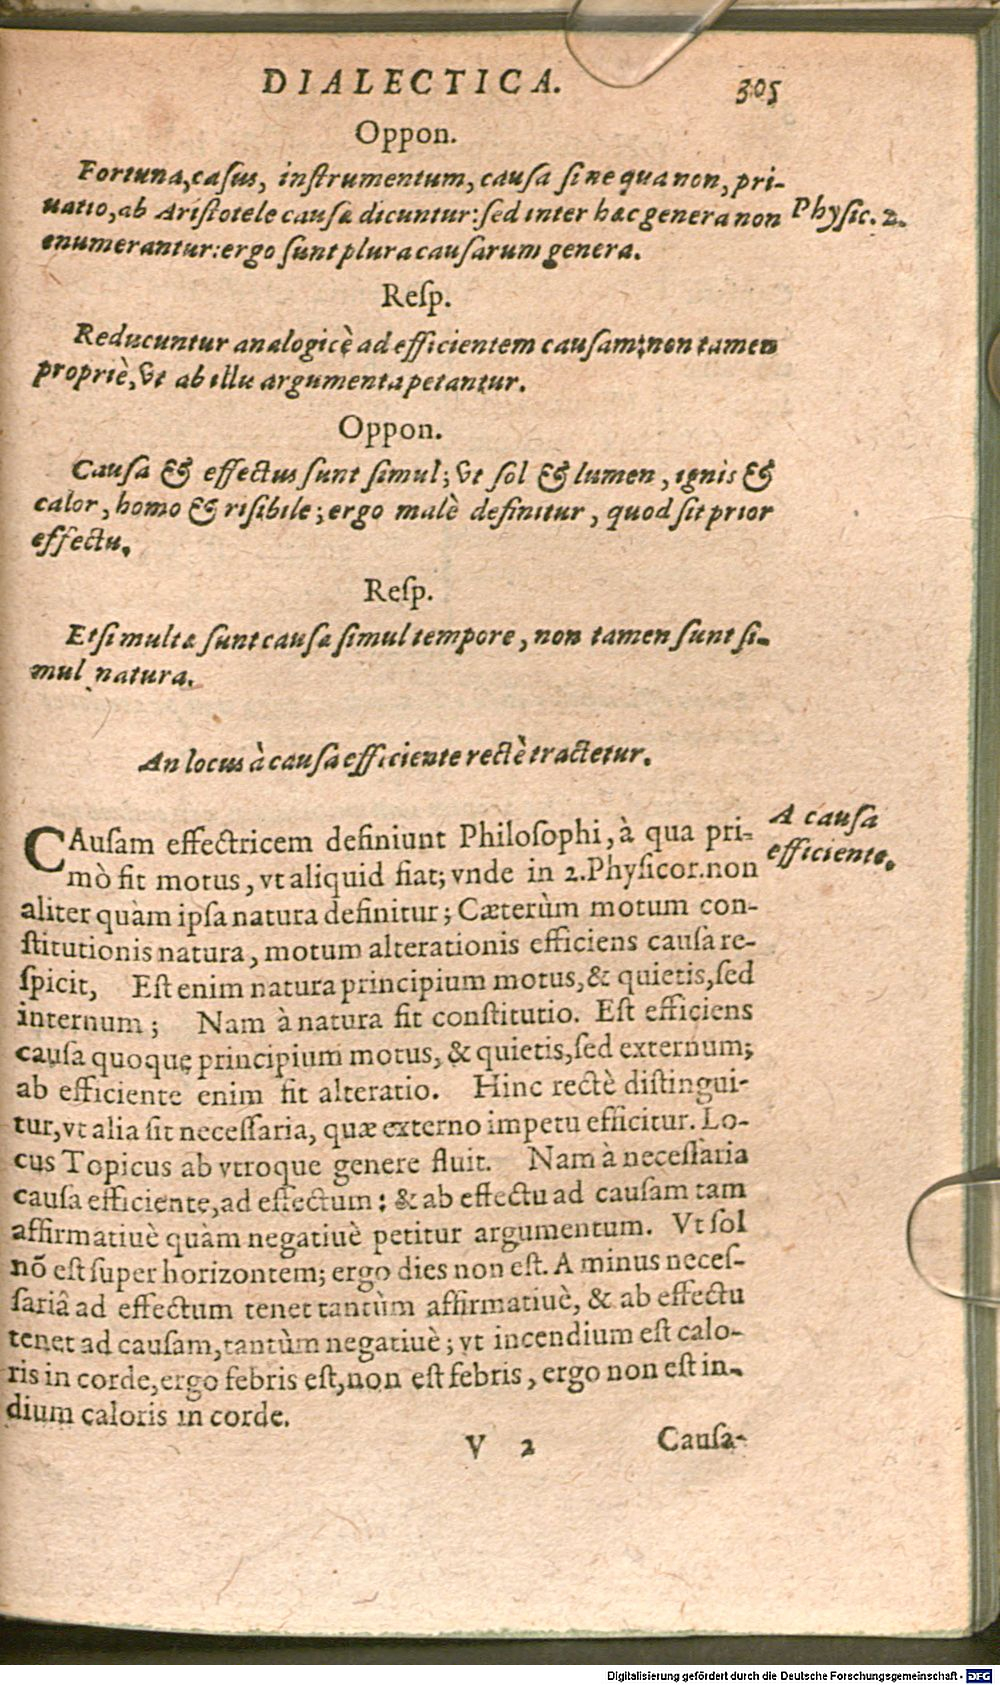 DIALECTICA. 305
Oppon.
Fortuna, casus, inſtrumentum, cauſa ſine qua non, pri-
uatio, ab Ariſtotele cauſæ dicuntur: ſed inter hæc genera non
Physic. 2.
enumerantur: ergo ſunt plura cauſarum genera.
Reſp.
Reducuntur analogicè ad efficientem cauſam; non tamen
propriè, vt ab illu argumenta petantur.
Oppon.
Cauſa & effectus ſunt ſimul; vt ſol & lumen, ignis &
calor, homo & riſibile; ergo malè definitur, quod ſit prior
effectu.
Reſp.
Etſi multæ ſunt cauſæ ſimul tempore, non tamen ſunt ſi-
mul natura.
An locus à cauſa efficiente rectè tractetur.
CAuſam effectricem definiunt Philoſophi, à qua pri-
A cauſa
mò fit motus, vt aliquid fiat; vnde in 2. Phyſicor. non
efficiente.
aliter quàm ipſa natura definitur; Cæterùm motum con-
ſtitutionis natura, motum alterationis efficiens cauſa re-
ſpicit, Eſt enim natura principium motus, & quietis, ſed
internum; Nam à natura fit conſtitutio. Eſt efficiens
cauſa quoque principium motus, & quietis, ſed externum;
ab efficiente enim fit alteratio. Hinc rectè diſtingui-
tur, vt alia ſit neceſſaria, quæ externo impetu efficitur. Lo-
cus Topicus ab vtroque genere fluit. Nam à neceſſaria
cauſa efficiente, ad effectum: & ab effectu ad cauſam tam
affirmatiuè quàm negatiuè petitur argumentum. Vt ſol
nõ eſt ſuper horizontem; ergo dies non eſt. A minus neceſ-
ſariâ ad effectum tenet tantùm affirmatiuè, & ab effectu
tenet ad cauſam, tantùm negatiuè; vt incendium eſt calo-
ris in corde, ergo febris eſt, non eſt febris, ergo non eſt in-
dium caloris in corde.
V 2 Cauſa-
Digitalisierung gefördert durch die Deutsche Forschungsgemeinschaft - DFG